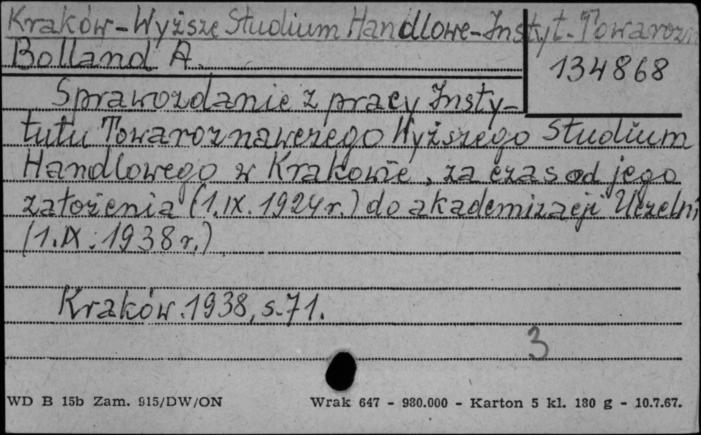 Kraków-Wyższe Studium Handlowe-Instyt. Towarozn
Bolland A.
134868
Sprawozdanie z pracy Insty-
tutu Towaroznawczego Wyższego Studium
Handlowego w Krakowie, za czas od jego
założenia (1.IX.1924r.) do akademizacji Uczelni
(1.IX.1938r.)
Kraków.1938, s.71.
3
WD B 15b Zam. 915/DW/ON Wrak 647 - 980.000 - Karton 5 kl. 180 g - 10.7.67.